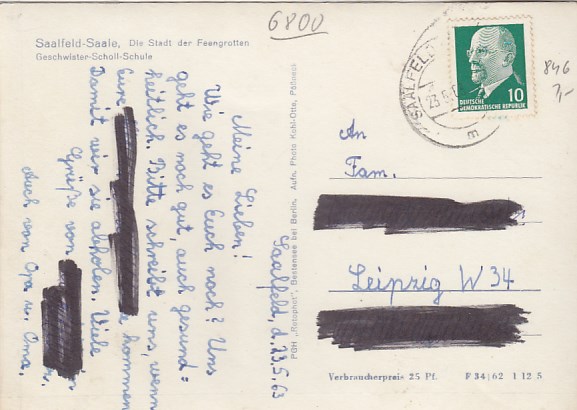 6800
Saalfeld-Saale, Die Stadt der Feengrotten
Geschwister-Scholl-Schule
SAALFELD
23.5.6
E
DEUTSCHE
DEMOKRATISCHE REPUBLIK
10
846
7,-
Saalfeld, d. 23.5.63
Meine Lieben!
Wie geht es Euch noch? Uns
geht es noch gut, auch gesund=
heitlich. Bitte schreibt uns, wenn
Eure kommen
Damit wir sie abholen. Viele
Grüße von
Auch von Opa u. Oma.
PGH „Rotophot", Bestensee bei Berlin. Aufn. Photo Kohl-Otte, Pößneck
An
Fam.
Leipzig W 34
Verbraucherpreis 25 Pf. F 34/62 I 12 5